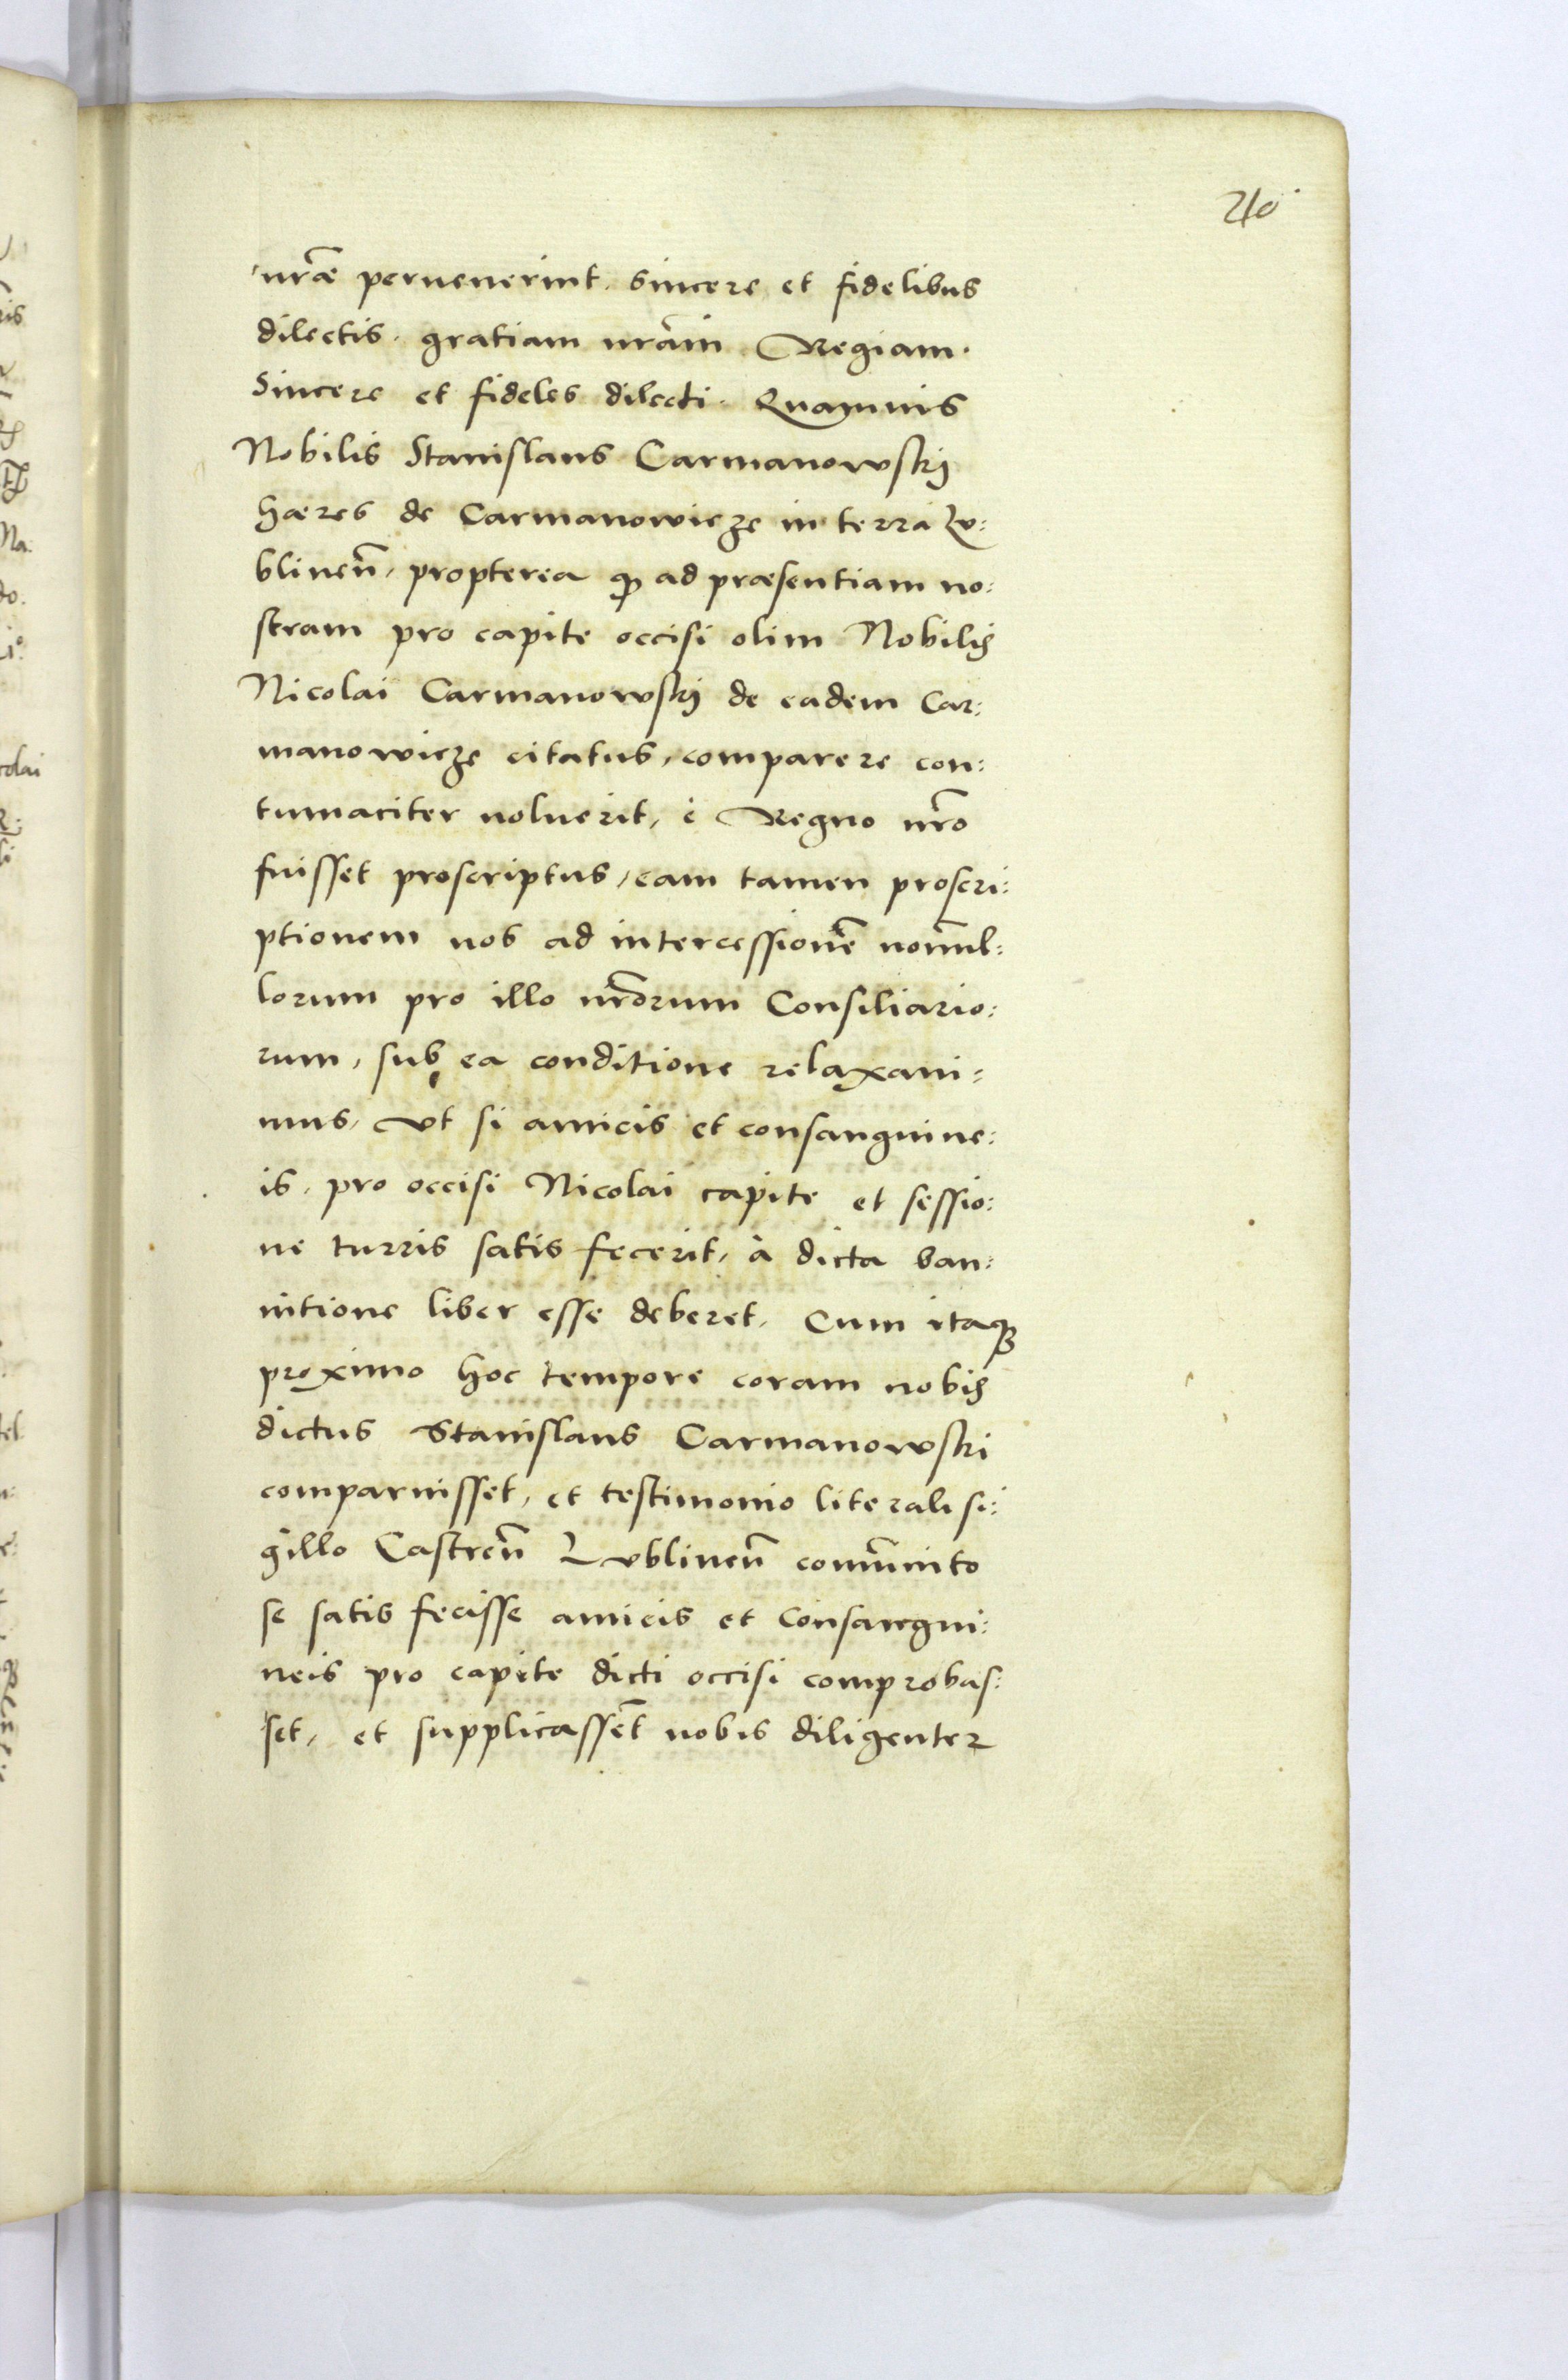 210
nr̃æ peruenerint. sincere et fidelibus
dilectis. gratiam nr̃am Regiam.
Sincere et fideles dilecti. Quamuis
Nobilis Stanislaus Carmanowskÿ
hæres de Carmanowicze in terra Lu:
blinen̄, propterea ꝙ ad præsentiam no:
stram pro capite occisi olim Nobilis
Nicolai Carmanowskÿ de eadem Car:
manowicze citatus, comparere con:
tumaciter noluerit, è Regno nr̃o
fuisset proscriptus, eam tamen proscri:
ptionem nos ad intercessionē nonnul:
lorum pro illo nr̃orum Consiliario:
rum, sub ea conditione relaxaui:
mus, Vt si amicis et consanguine:
is, pro occisi Nicolai capite et sessio:
ne turris satis fecerit, à dicta ban:
nitione liber esse deberet. Cum itaqꝫ
proximo hoc tempore coram nobis
dictus Stanislaus Carmanowski
comparuisset, et testimonio literali si:
gillo Castren̄ Lublinen̄ com̄unito
se satis fecisse amicis et Consangui:
neis pro capite dicti occisi comprobas:
set, et supplicassēt nobis diligenter